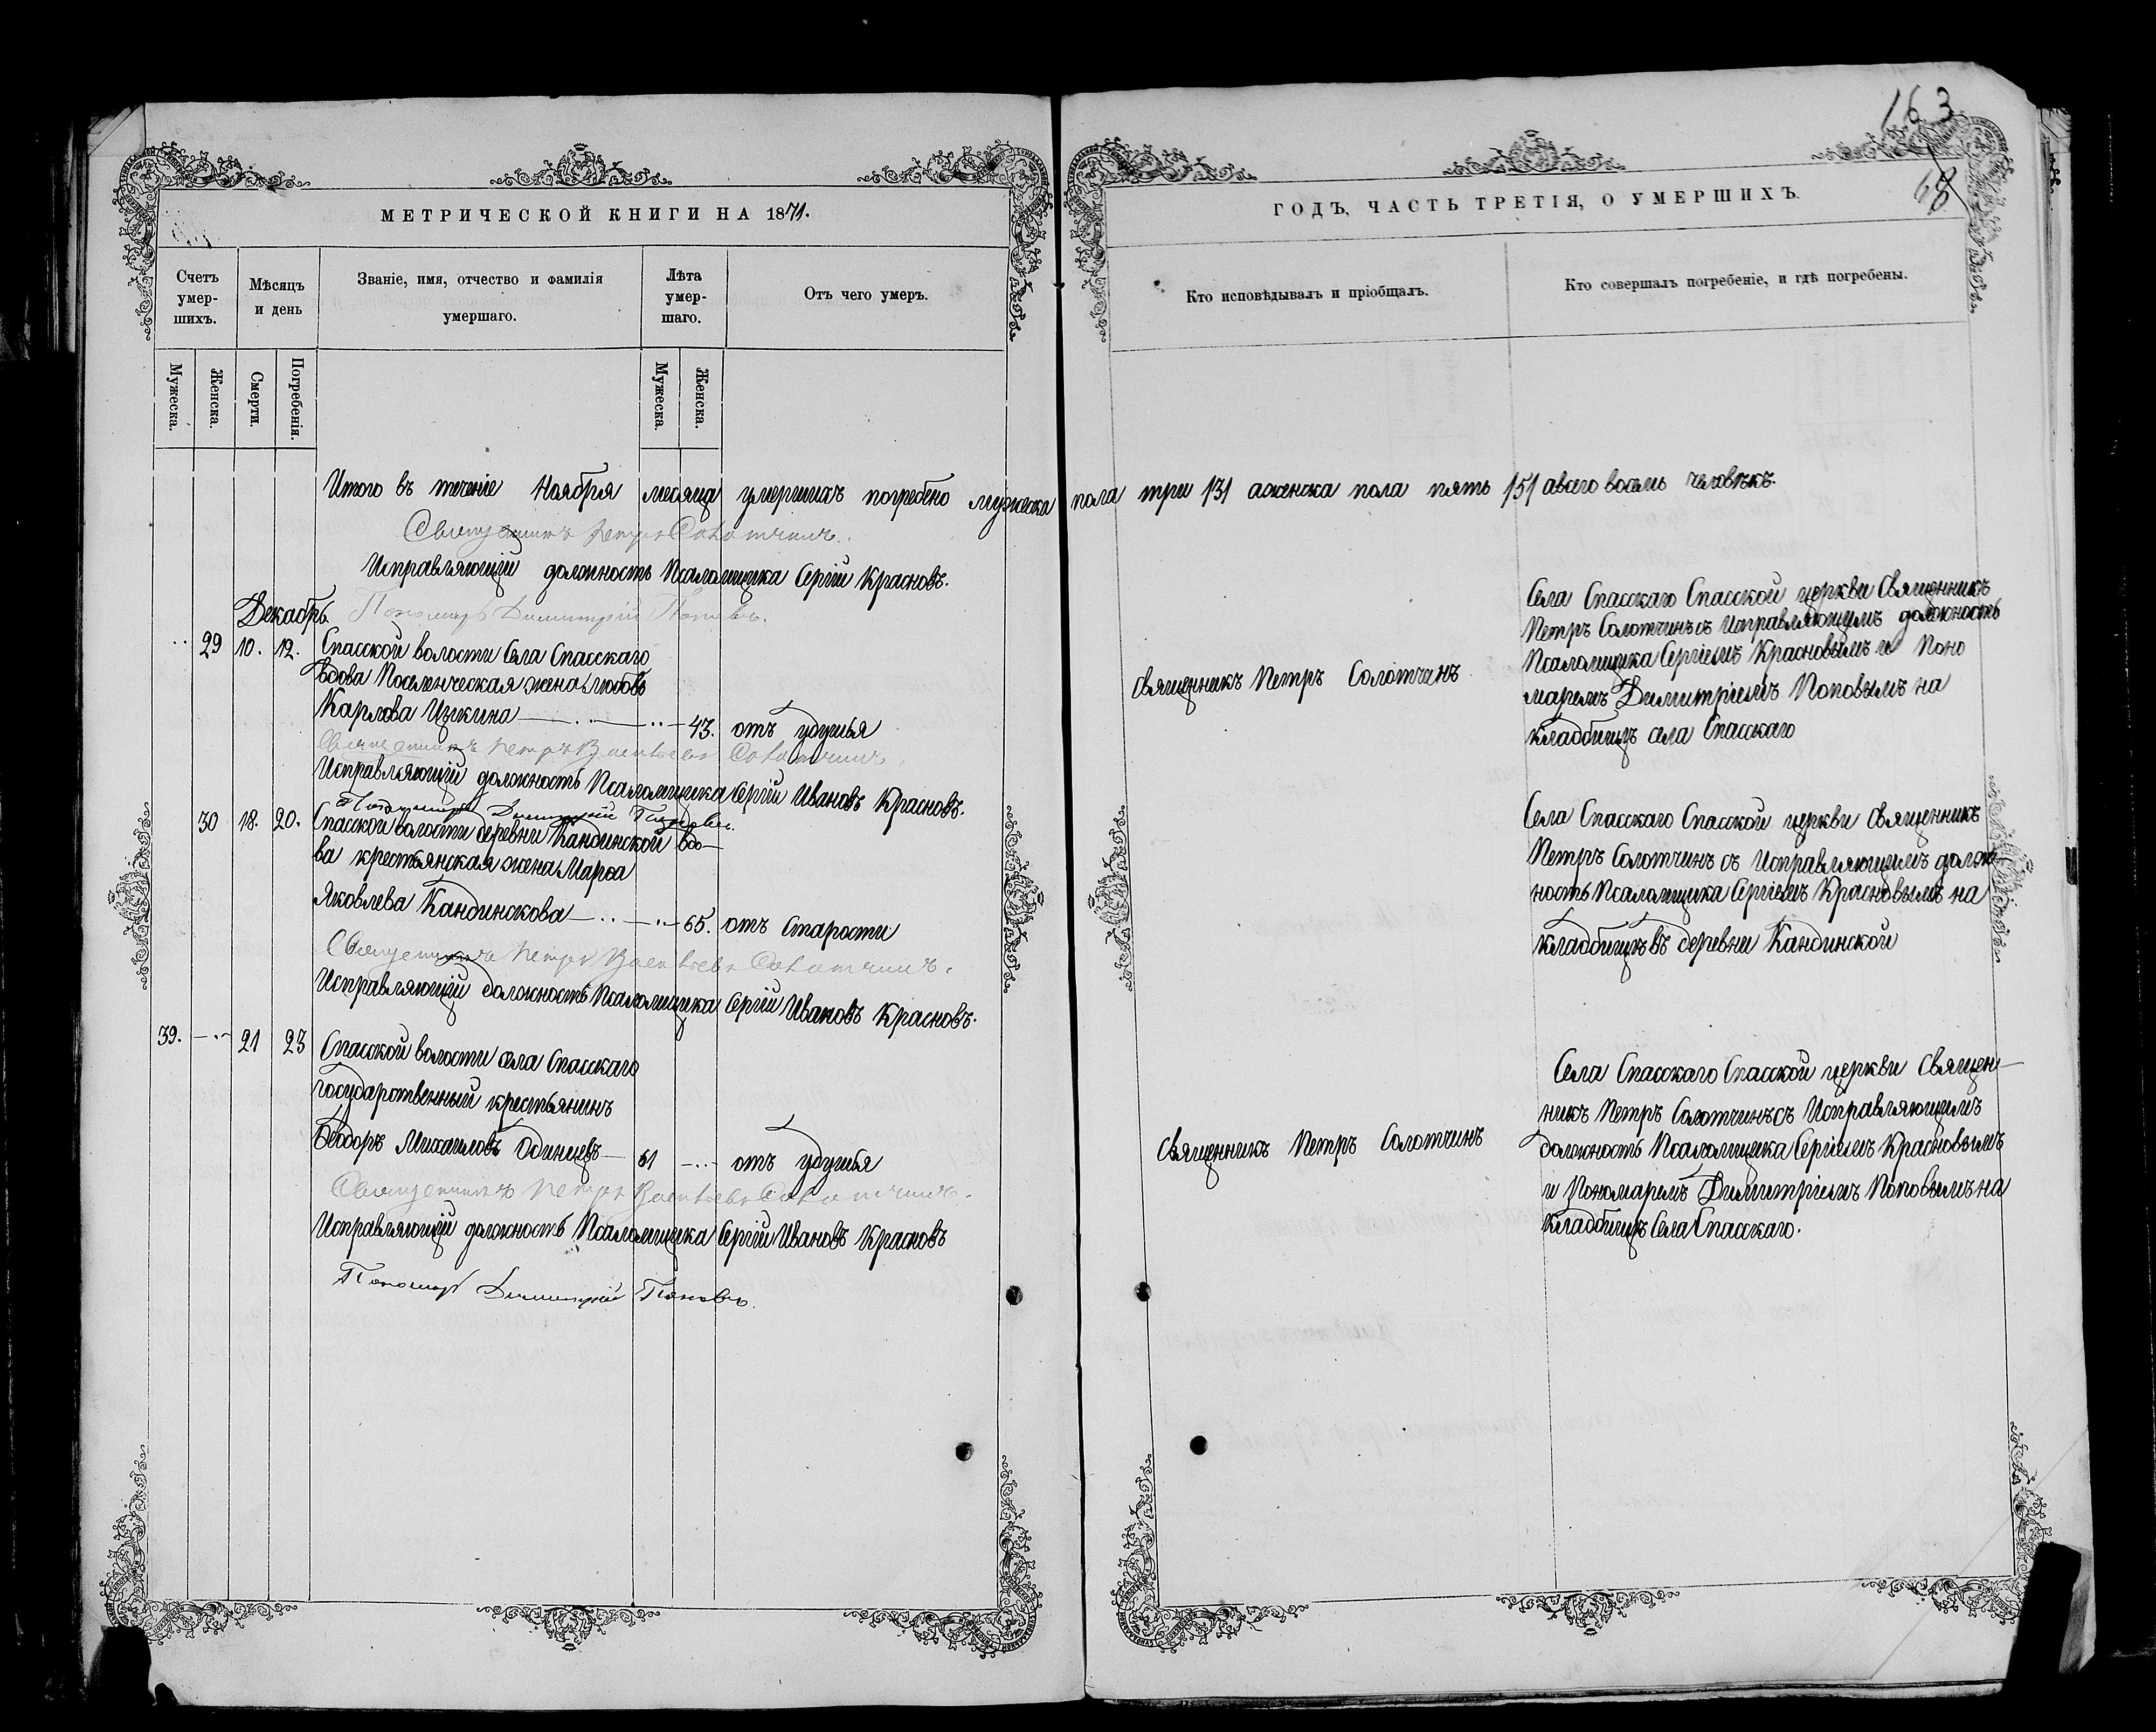 163
68
МЕТРИЧЕСКОЙ КНИГИ НА 1871.
ГОДЪ, ЧАСТЬ ТРЕТІЯ, О УМЕРШИХЪ.
Счетъ умер-шихъ.
Мѣсяцъ и день
Званіе, имя, отчество и фамилія умершаго.
Лѣта умер-шаго.
Отъ чего умеръ.
Кто исповѣдывалъ и пріобщалъ.
Кто совершалъ погребеніе, и гдѣ погребены.
Мужеска.
Женска.
Смерти.
Погребенія.
Мужеска.
Женска.
Итого въ теченіе Ноября месяца умершихъ погребено мужеска пола три /3/ аженска пола пять /5/ авсего восемь человѣкъ.
Священникъ Петръ Солотчинъ.
Исправляющій должность Псаломщика Сергій Красновъ.
Пономарь Димитрій Поповъ.
Декабрь
29 10. 12. Спасской волости Села Спасскаго
вдова Поселенческая жена Любовь
Карлова Цыкина 43. отъ удушья
Священникъ Петръ Васильевъ Солотчинъ.
Исправляющій должность Псаломщика Сергій Ивановъ Красновъ.
Пономарь Димитрій Поповъ.
Священникъ Петръ Солотчинъ
Села Спасскаго Спасской церкви Священникъ
Петръ Солотчинъ съ Исправляющимъ должность
Псаломщика Сергіемъ Красновымъ и Поно
маремъ Димитріемъ Поповымъ на
кладбищѣ села Спасскаго
30 18. 20. Спасской волости деревни Кандинской вдо-
ва крестьянская жена Марѳа
Яковлева Кандинскова 65. отъ Старости
Священникъ Петръ Васильевъ Солотчинъ.
Исправляющій должность Псаломщика Сергій Ивановъ Красновъ.
Села Спасскаго Спасской церкви Священникъ
Петръ Солотчинъ съ Исправляющимъ долж
ность Псаломщика Сергіемъ Красновымъ на
кладбищѣ въ деревни Кандинской
39. 21 23 Спасской волости села Спасскаго
государственный крестьянинъ
Ѳеодоръ Михаиловъ Одинцевъ 61 отъ удушья
Священникъ Петръ Васильевъ Солотчинъ.
Исправляющій должность Псаломщика Сергій Ивановъ Красновъ
Пономарь Димитрій Поповъ.
Священникъ Петръ Солотчинъ
Села Спасскаго Спасской церкви Священ-
никъ Петръ Солотчинъ съ Исправляющимъ
должность Псаломщика Сергіемъ Красновымъ
и Пономаремъ Димитріемъ Поповымъ на
кладбищѣ Села Спасскаго.